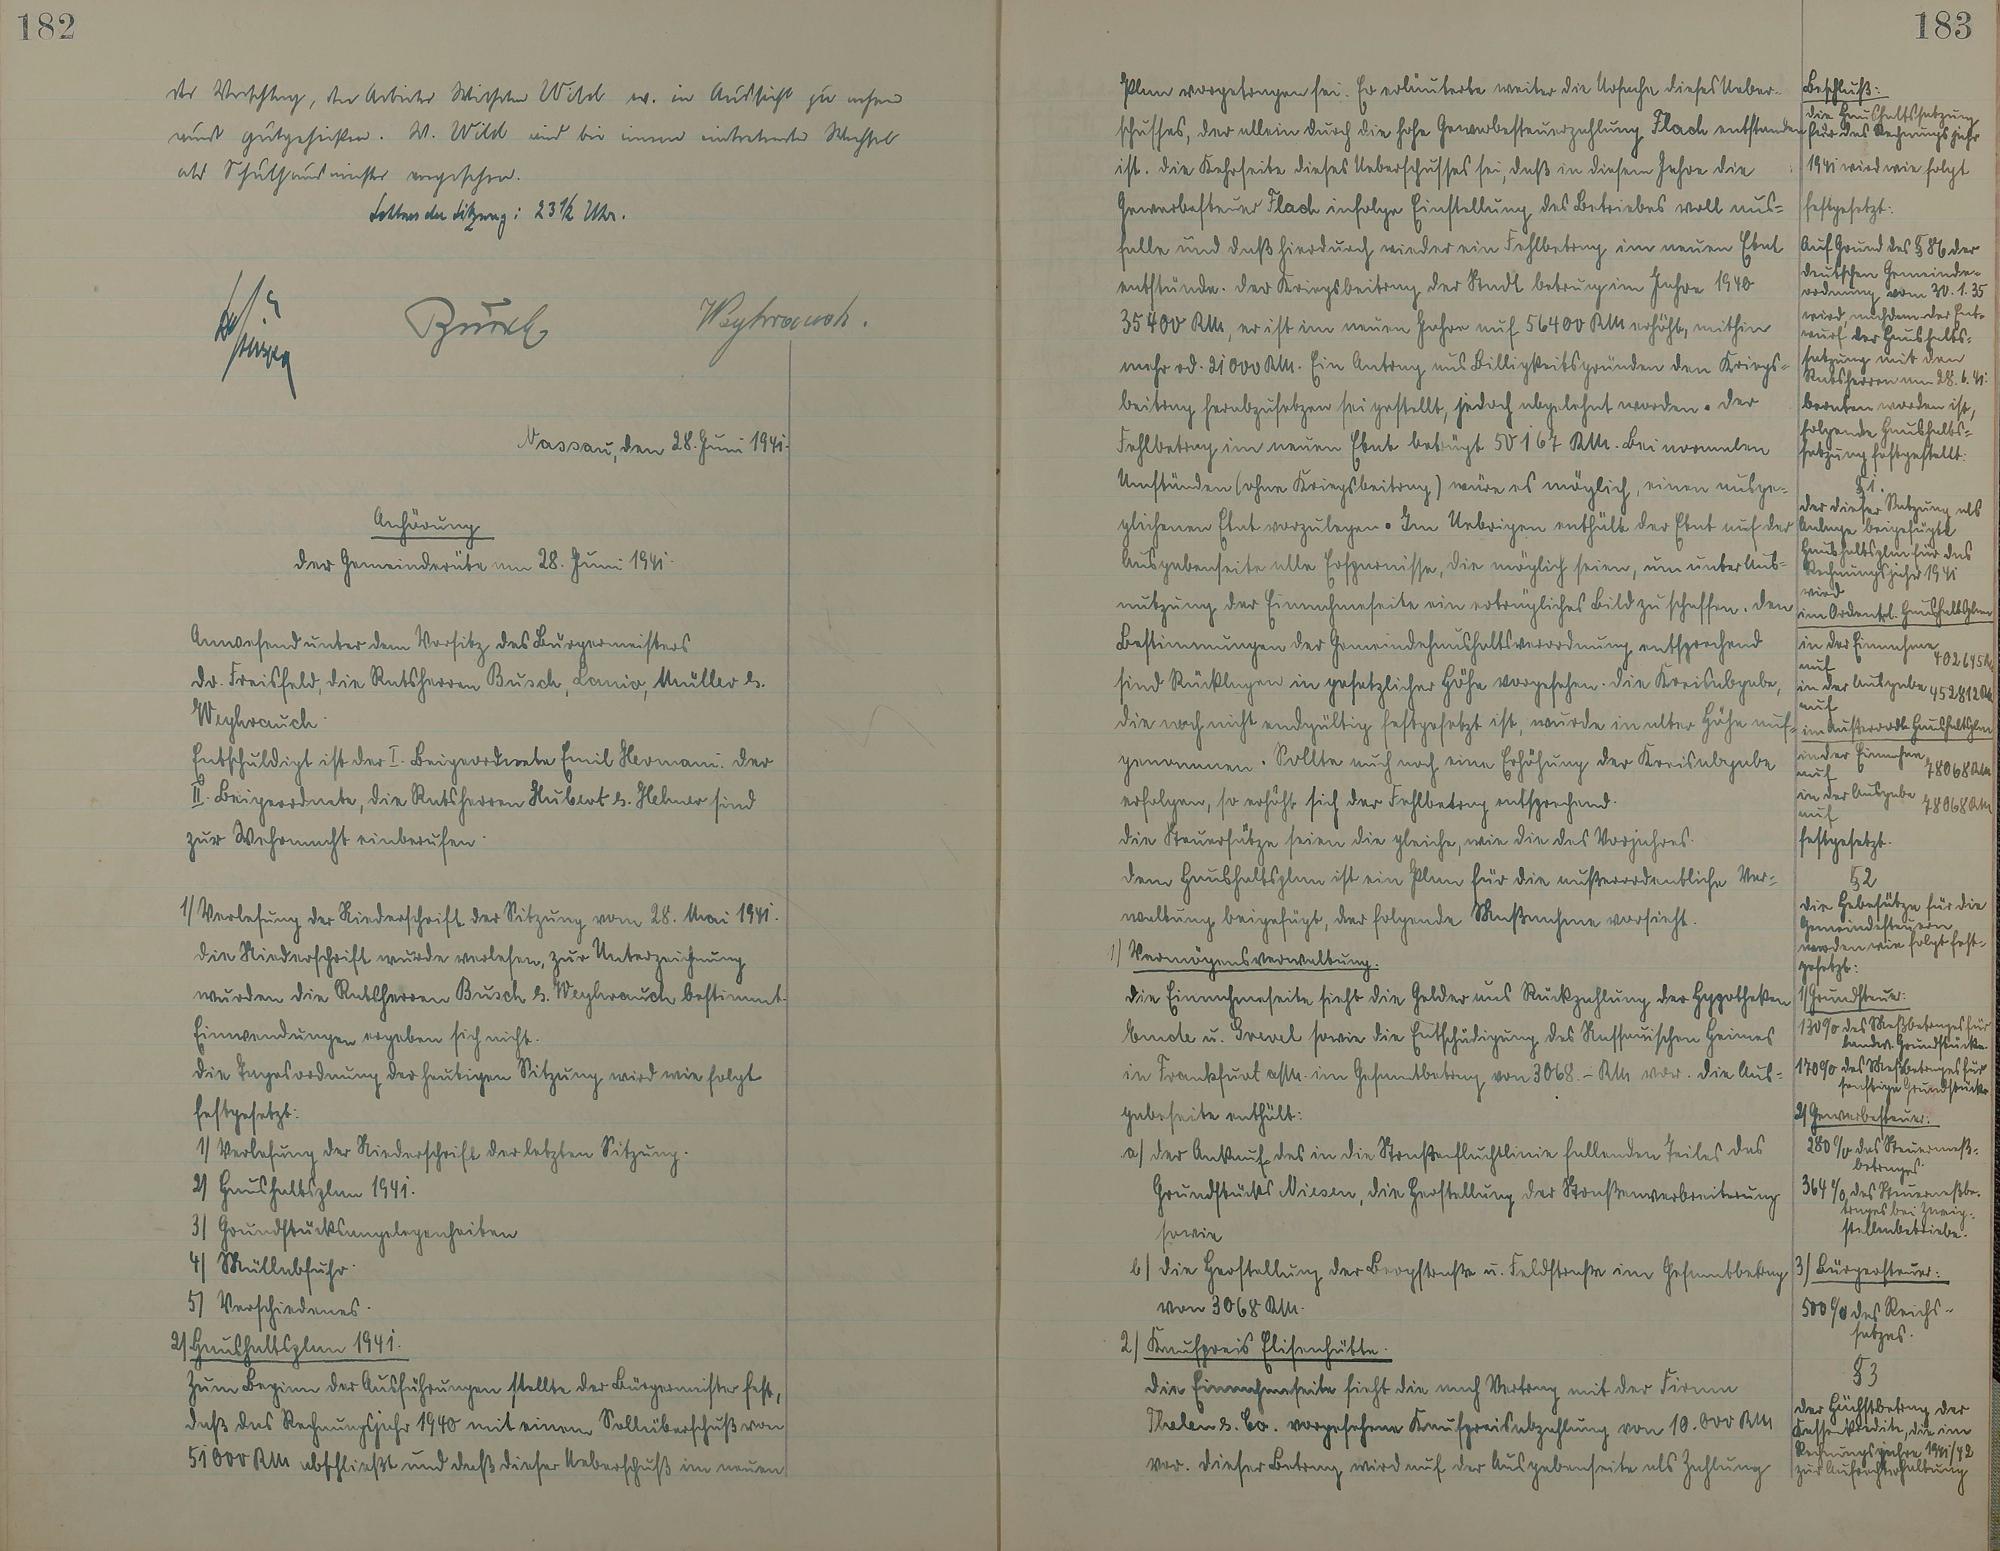 182
der Vorschlag, den Arbeiter Wilhelm Wild w. in Aussicht zu nehmen
wird gutgeheißen. W. Wild wird bei einem eintretenden Wechsel
als Schulhausmeister vorgesehen.
Schluss der Sitzung: 23 1/2 Uhr.
Busch Weyhrauch.
Nassau, den 28. Juni 1941.
Anhörung
der Gemeinderäte am 28. Juni 1941.
Anwesend unter dem Vorsitz des Bürgermeisters
Dr. Freisfeld, die Ratsherren Busch, Lanio, Müller &.
Weyhrauch.
Entschuldigt ist der I. Beigeordnete Emil Hermani. Der
II. Beigeordnete, die Ratsherren Hubert &. Helmer sind
zur Wehrmacht einberufen.
1/ Verlesung der Niederschrift der Sitzung vom 28. Mai 1941.
Die Niederschrift wurde verlesen, zur Unterzeichnung
wurden die Ratsherren Busch &. Weyhrauch bestimmt.
Einwendungen ergeben sich nicht.
Die Tagesordnung der heutigen Sitzung wird wie folgt
festgesetzt:
1/ Verlesung der Niederschrift der letzten Sitzung.
2/ Haushaltsplan 1941.
3/ Grundstücksangelegenheiten
4/ Müllabfuhr.
5/ Verschiedenes.
2/ Haushaltsplan 1941.
Zum Beginn der Ausführungen stellte der Bürgermeister fest,
daß das Rechnungsjahr 1940 mit einem Sollüberschuß von
51000 RM abschließt und daß dieser Ueberschuß im neuen
183
Plan vorgetragen sei. Er erläuterte weiter die Ursache dieses Ueber-
schusses, der allein durch die hohe Gewerbesteuerzahlung Flach entstanden
ist. Die Kehrseite dieses Ueberschusses sei, daß in diesem Jahre die
Gewerbesteuer Flach infolge Einstellung des Betriebes voll aus-
falle und daß hierdurch wieder ein Fehlbetrag im neuen Etat
entstünde. Der Kriegsbeitrag der Stadt betrug im Jahre 1940
35400 RM, er ist im neuen Jahre auf 56400 RM erhöht, mithin
mehr rd. 21000 RM. Ein Antrag aus Billigkeitsgründen den Kriegs-
beitrag herabzusetzen sei gestellt, jedoch abgelehnt worden. Der
Fehlbetrag im neuen Etat beträgt 50167 RM. Bei normalen
Umständen (ohne Kriegsbeitrag) wäre es möglich, einen ausge-
glichenen Etat vorzulegen. Im Uebrigen enthält der Etat auf der
Ausgabenseite alle Ersparnisse, die möglich seien, um unter Aus-
nutzung der Einnahmeseite ein erträgliches Bild zu schaffen. Den
Bestimmungen der Gemeindehaushaltsverordnung entsprechend
sind Rücklagen in gesetzlicher Höhe vorgesehen. Die Kreisabgabe,
die noch nicht endgültig festgesetzt ist, wurde in alter Höhe auf-
genommen. Sollte auch noch eine Erhöhung der Kreisabgabe
erfolgen, so erhöht sich der Fehlbetrag entsprechend.
Die Steuersätze seien die gleiche, wie die des Vorjahres.
Dem Haushaltsplan ist ein Plan für die außerordentliche Ver-
waltung beigefügt, der folgende Maßnahme vorsieht.
1/ Vermögensverwaltung.
Die Einnahmeseite sieht die Gelder aus Rückzahlung der Hypotheken
u. Grevel sowie die Entschädigung des Nassauischen Heimes
in Frankfurt a/M. im Gesamtbetrag von 3068.- RM vor. Die Aus-
gabeseite enthält:
a/ der Ankauf des in die Straßenfluchtlinie fallenden Teiles des
Grundstücks Niesen, die Herstellung der Straßenverbreiterung
sowie
b/ die Herstellung der Bergstraße u. Feldstraße im Gesamtbetrag
von 3068 RM.
2/ Kaufpreis Elisenhütte.
Die Einnahmeseite sieht die nach Vertrag mit der Firma
Thelen &. Co. vorgesehene Kaufpreisabzahlung von 10.000 RM
vor. Dieser Betrag wird auf der Ausgabenseite als Zahlung
Beschluß:
Die Haushaltssatzung
für das Rechnungsjahr
1941 wird wie folgt
festgesetzt:
Auf Grund des § 86 der
Deutschen Gemeinde-
ordnung vom 30.1.35
wird, nachdem der Ent-
wurf der Haushalts-
satzung mit den
Ratsherren am 28.6.41.
beraten worden ist,
folgende Haushalts-
satzung festgestellt:
§ 1.
Der dieser Satzung als
Anlage beigefügte
Haushaltsplan für das
Rechnungsjahr 1941
wird
im Ordentl. Haushaltsplan
in der Einnahme
auf 402645 RM
in der Ausgabe 452812 RM
auf
im Außerordtl. Haushaltsplan
in der Einnahme
auf 78068 RM
in der Ausgabe 78068 RM
auf
festgesetzt.
§ 2
Die Hebesätze für die
Gemeindesteuern
werden wie folgt fest-
gesetzt:
1/ Grundsteuer:
130% des Meßbetrages für
landw. Grundstücke.
170% des Meßbetrages für
sonstige Grundstücke
2/ Gewerbesteuer:
280% des Steuermeß-
betrages.
364% des Steuermeßbe-
trages bei Zweig-
stellenbetriebe.
3/ Bürgersteuer:
500% des Reichs-
satzes.
§ 3
Der Höchstbetrag der
Kassenkredite, die im
Rechnungsjahre 1941/42
zur Aufrechterhaltung